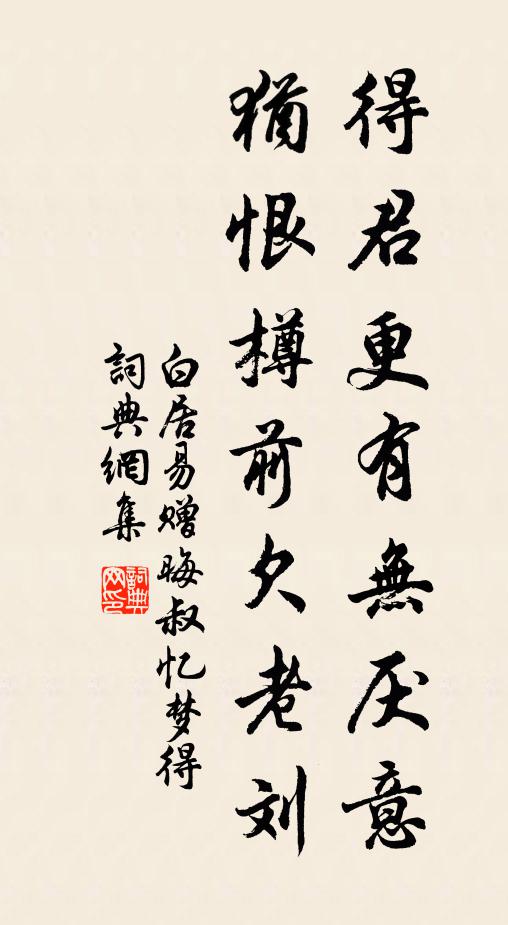 得君更有無厌意
猶恨樽前欠老刘
白居易赠晦叔忆梦得
詞典網集
詞典网印